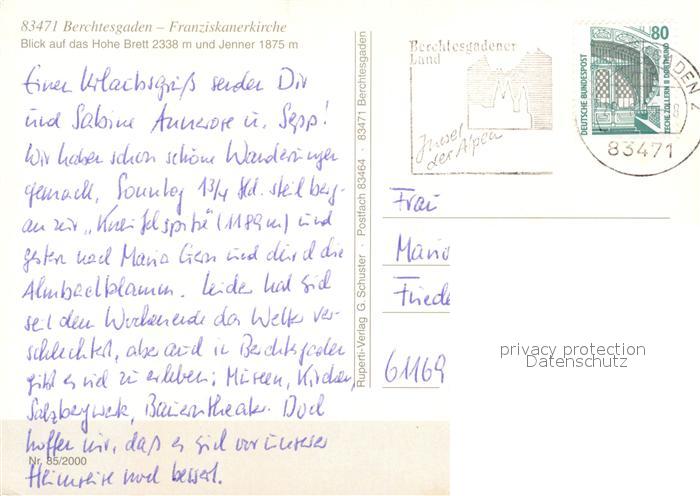 83471 Berchtesgaden – Franziskanerkirche
Blick auf das Hohe Brett 2338 m und Jenner 1875 m
Einen Urlaubsgruß senden Dir
und Sabine Annerose u. Sepp!
Wir haben schon schöne Wanderungen
gemacht, Sonntag 1 3/4 Std. steil berg-
an zur „Kneifelspitze" (1189m) und
gestern nach Maria Gern und durch die
Almbachklamm. Leider hat sich
seit dem Wochenende das Wetter ver-
schlechtert, aber auch in Berchtesgaden
gibt es viel zu erleben: Museen, Kirchen,
Salzbergwerk, Bauerntheater. Doch
hoffen wir, daß es sich vor unserer
Heimreise noch bessert.
Nr. 85/2000
Ruperti-Verlag G. Schuster · Postfach 83464 · 83471 Berchtesgaden
Berchtesgadener
Land
Insel
der Alpen
80
DEUTSCHE BUNDESPOST
ZECHE ZOLLERN II DORTMUND
83471
Frau
Friede
61169
privacy protection
Datenschutz